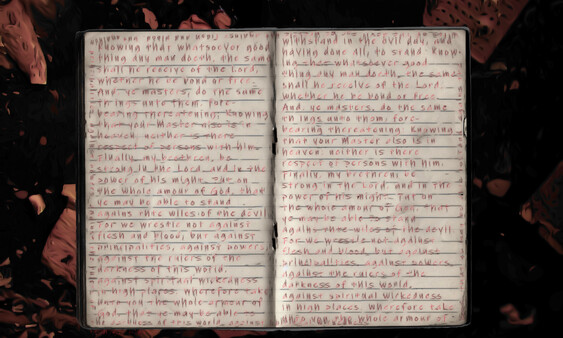 knowing that whatsoever good
thing any man doeth, the same
shall he receive of the Lord,
whether he be bond or free.
And ye masters, do the same
things unto them, fore-
bearing threatening; knowing
that your Master also is in
heaven neither is there
respect of persons with him.
Finally, my brethren, be
strong in the Lord and in the
power of his might. Put on
the whole amour of God, that
ye may be able to stand
against the wiles of the devil
For we wrestle not against
flesh and blood, but against
principalities, against powers,
against the rulers of the
darkness of this world,
against spiritual wickedness
in high places. Wherefore take
unto you the whole armour of
God, that ye may be able to
darkness of this world, against
withstand in the evil day, and
having done all, to stand. Know-
ing that whatsoever good
thing any man doeth, the same
shall he receive of the Lord,
whether he be bond or free
And, ye masters, do the same
things unto them, fore-
bearing threatening Knowing
that your Master also is in
heaven, neither is there
respect of persons with him.
Finally, my brethren be
strong in the Lord, and in the
power of his might. Put on
the whole amour of God, that
ye may be able to stand
against the wiles of the devil.
For we wrestle not against
flesh and blood, but against
principalities, against powers,
against the rulers of the
darkness of this world,
against spiritual wickedness
in high places. Wherefore take
unto you the whole armour of